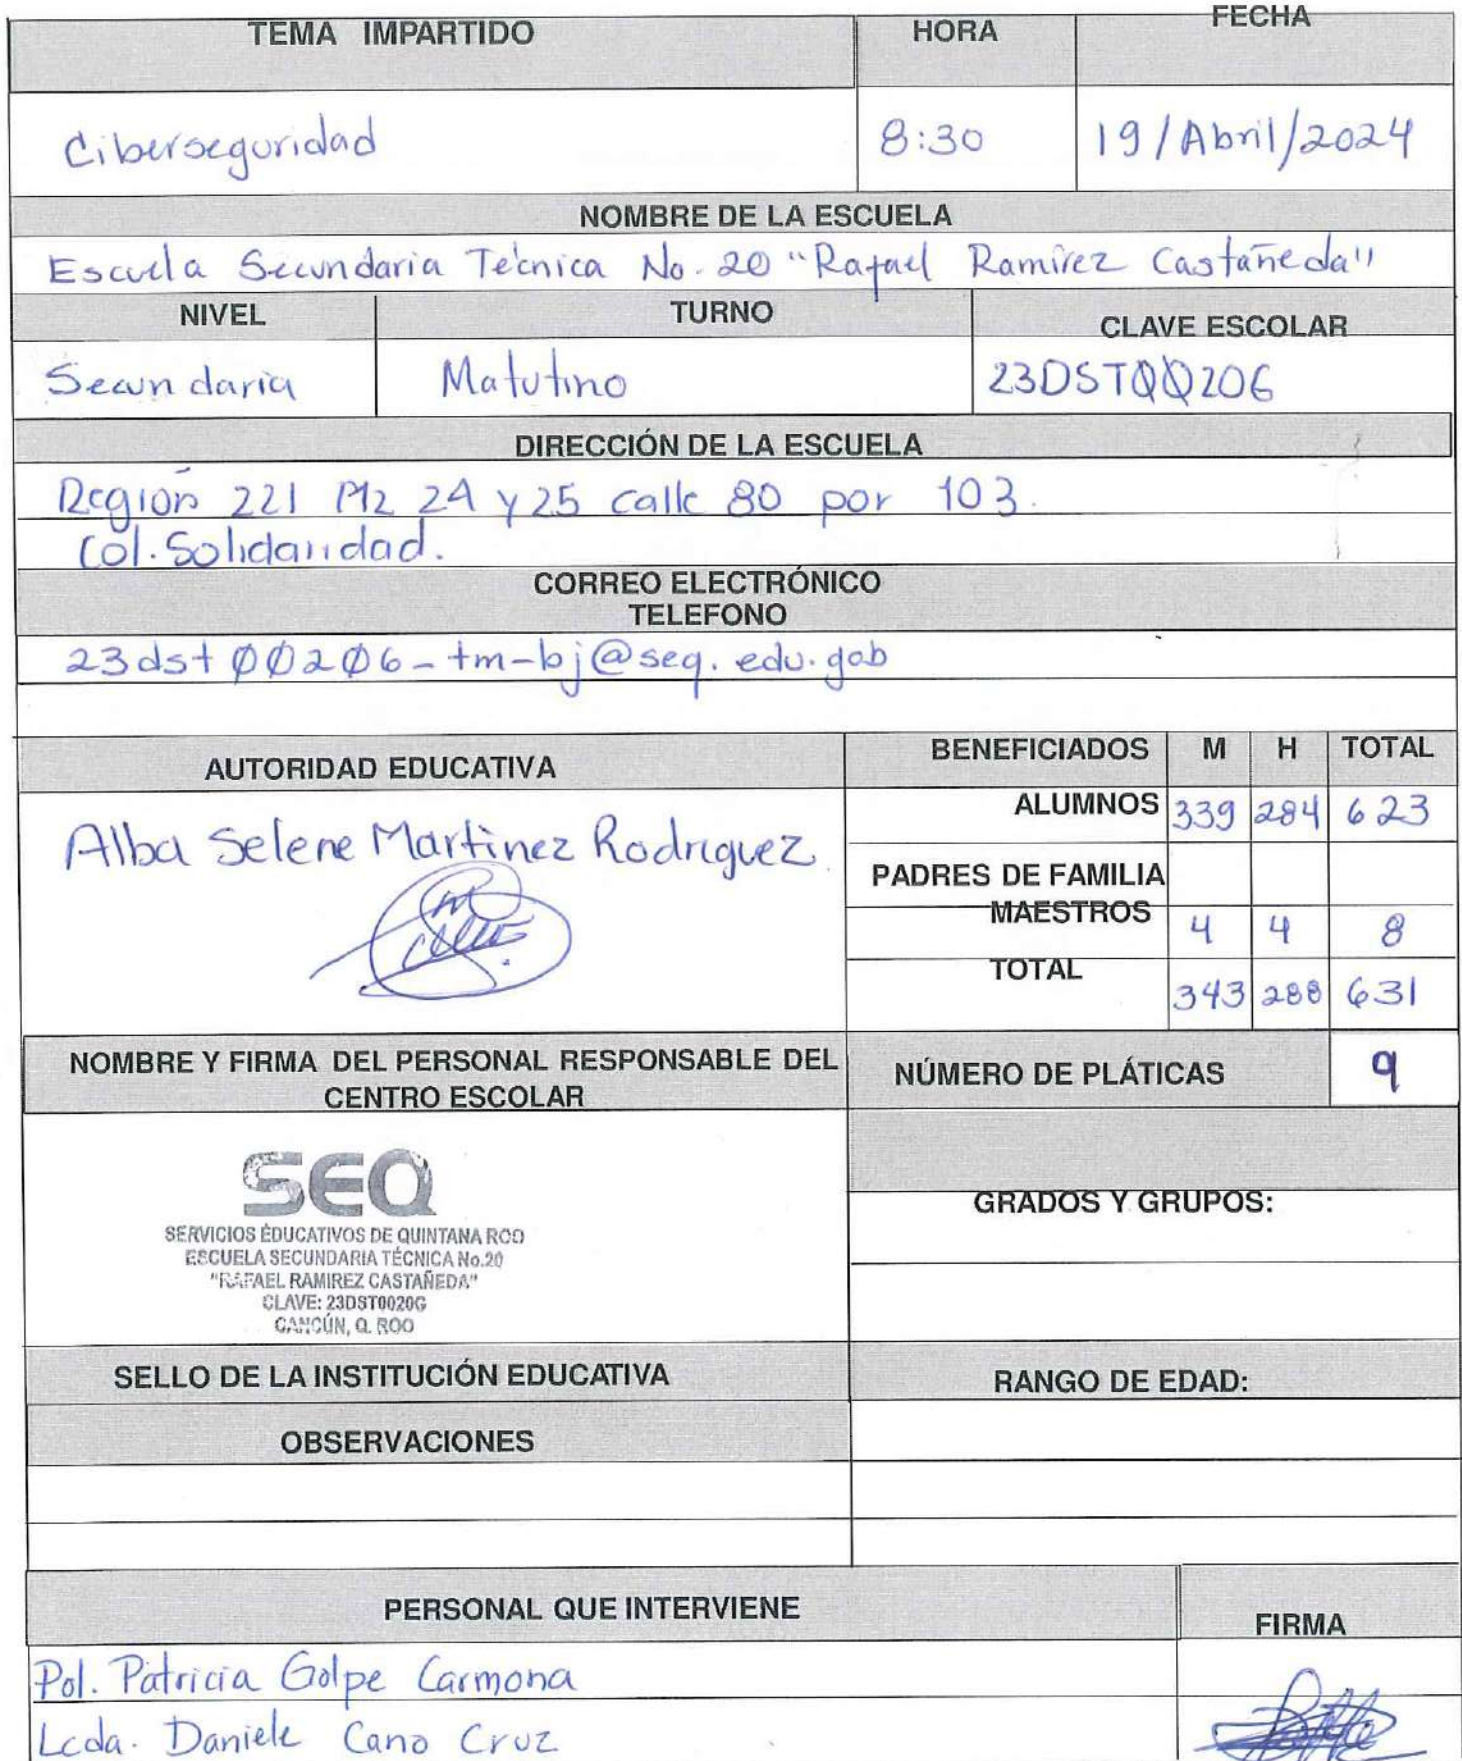 TEMA IMPARTIDO HORA FECHA
Ciberseguridad 8:30 19/Abril/2024
NOMBRE DE LA ESCUELA
Escuela Secundaria Técnica No. 20 "Rafael Ramírez Castañeda"
NIVEL TURNO CLAVE ESCOLAR
Secundaria Matutino 23DST0020G
DIRECCIÓN DE LA ESCUELA
Región 221 Mz 24 y 25 calle 80 por 103.
Col. Solidaridad.
CORREO ELECTRÓNICO
TELEFONO
23dst00206-tm-bj@seq.edu.gob
AUTORIDAD EDUCATIVA BENEFICIADOS M H TOTAL
Alba Selene Martínez Rodriguez ALUMNOS 339 284 623
PADRES DE FAMILIA
MAESTROS 4 4 8
TOTAL 343 288 631
NOMBRE Y FIRMA DEL PERSONAL RESPONSABLE DEL
CENTRO ESCOLAR
NÚMERO DE PLÁTICAS 9
SEQ
SERVICIOS EDUCATIVOS DE QUINTANA ROO
ESCUELA SECUNDARIA TÉCNICA No.20
"RAFAEL RAMIREZ CASTAÑEDA"
CLAVE: 23DST0020G
CANCÚN, Q. ROO
GRADOS Y GRUPOS:
SELLO DE LA INSTITUCIÓN EDUCATIVA RANGO DE EDAD:
OBSERVACIONES
PERSONAL QUE INTERVIENE FIRMA
Pol. Patricia Golpe Carmona
Lcda. Daniele Cano Cruz